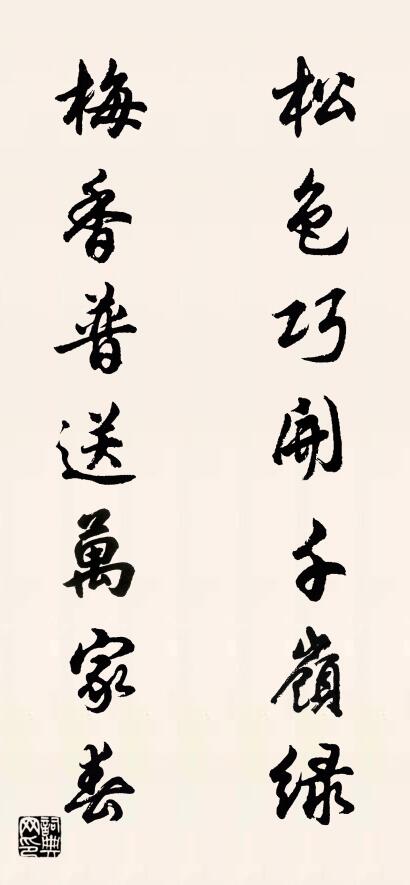 松色巧開千嶺緑
梅香普送萬家春
詞典网印